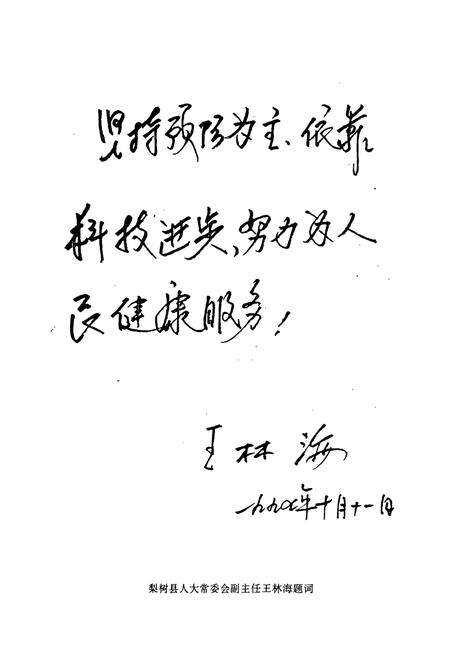 坚持预防为主、依靠
科技进步，努力为人
民健康服务！
王林海
一九九七年十月十一日
梨树县人大常委会副主任王林海题词